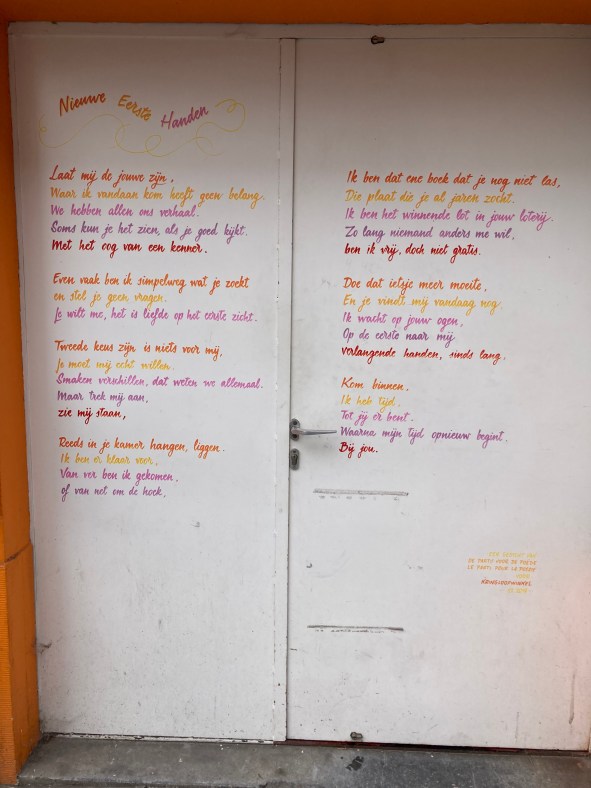 Nieuwe Eerste Handen
Laat mij de jouwe zijn,
Waar ik vandaan kom heeft geen belang.
We hebben allen ons verhaal.
Soms kun je het zien, als je goed kijkt.
Met het oog van een kenner.
Even vaak ben ik simpelweg wat je zoekt
en stel je geen vragen.
Je wilt me, het is liefde op het eerste zicht.
Tweede keus zijn is niets voor mij,
Je moet mij echt willen.
Smaken verschillen, dat weten we allemaal.
Maar trek mij aan,
zie mij staan,
Reeds in je kamer hangen, liggen.
Ik ben er klaar voor.
Van ver ben ik gekomen.
of van net om de hoek.
Ik ben dat ene boek dat je nog niet las,
Die plaat die je al jaren zocht.
Ik ben het winnende lot in jouw loterij.
Zo lang niemand anders me wil,
ben ik vrij, doch niet gratis.
Doe dat ietsje meer moeite,
En je vindt mij vandaag nog.
Ik wacht op jouw ogen,
Op de eerste naar mij
verlangende handen, sinds lang.
Kom binnen.
Ik heb tijd.
Tot jij er bent.
Waarna mijn tijd opnieuw begint.
Bij jou.
EEN GEDICHT VAN
VOOR